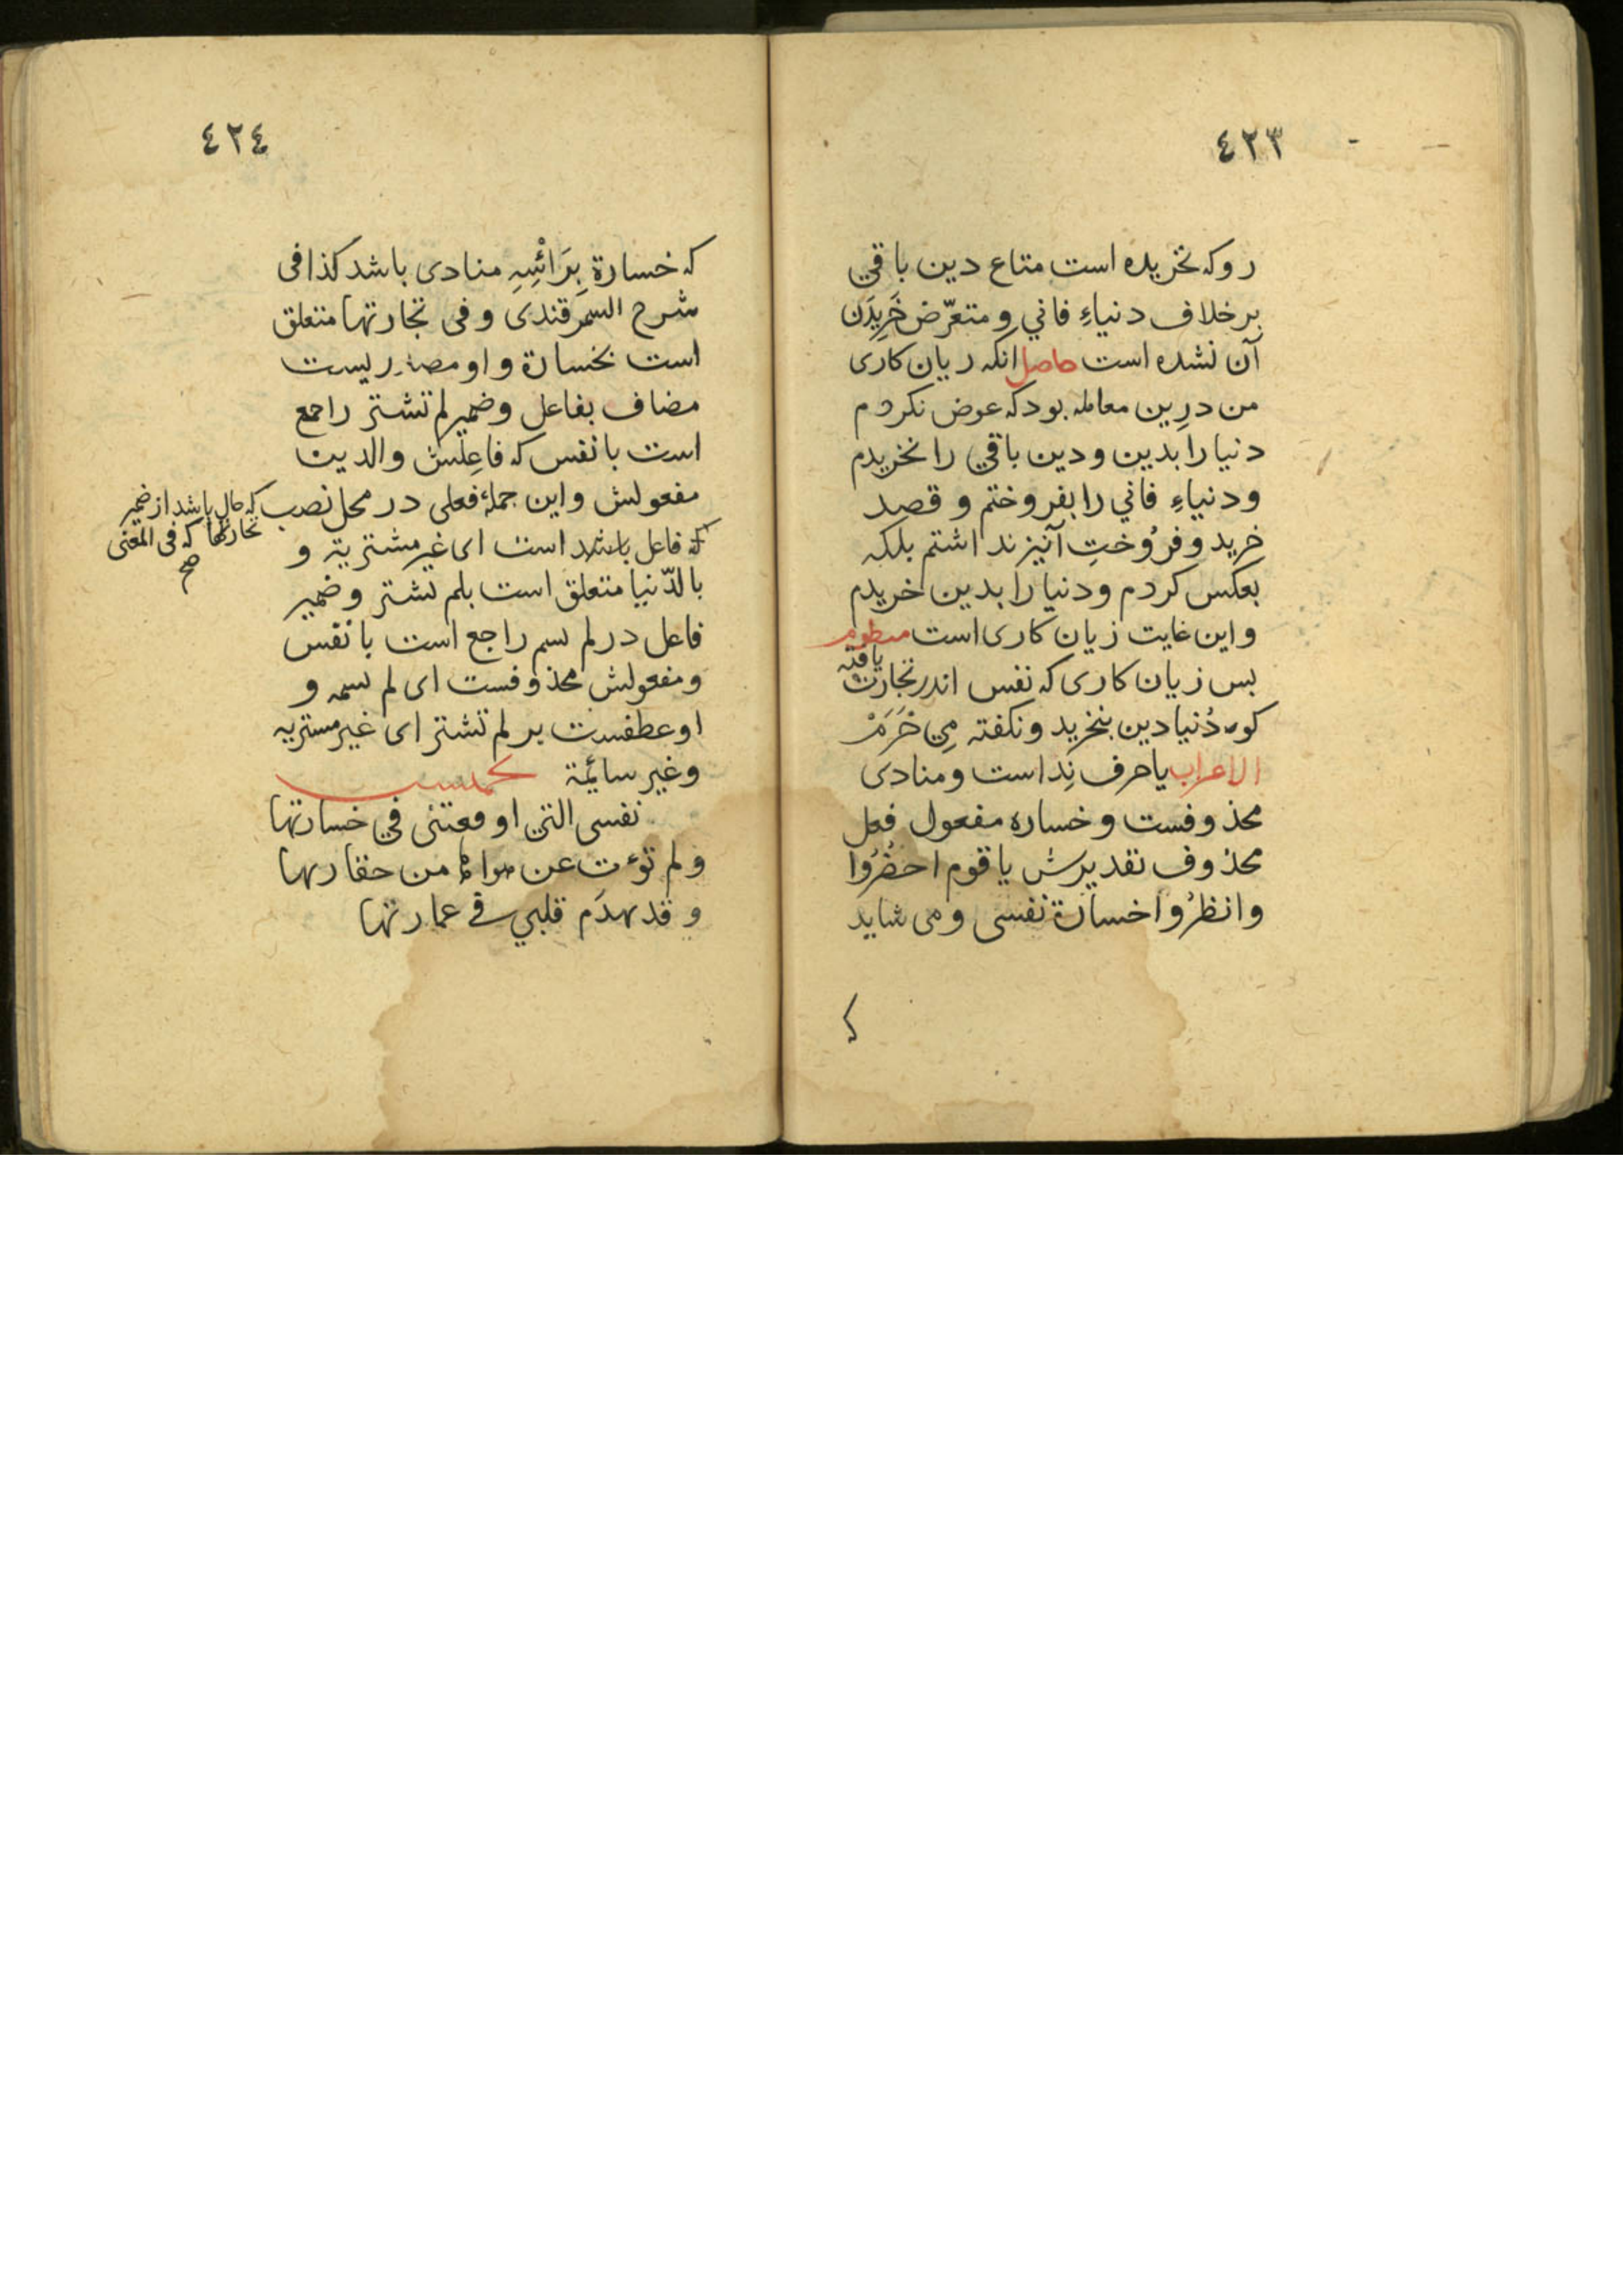 ٤٢٣
رو که نخریده است متاع دین باقي
برخلاف دنیاءِ فاني و متعرّض خَرِیدَن
آن نشده است حاصل انکه زیان کاری
من درِین معامله بود که عوض نکردم
دنیا را بدین و دین باقي را نخریدم
و دنیاءِ فاني را بفروختم و قصد
خرید و فرُوختِ آنیز نداشتم بلکه
بعکس کردم و دنیا را بدین خریدم
و این غایت زیان کاری است منظوم
بس زیان کاری که نفس اندر تجارت یافته
کو به دُنیا دین بنخرید و نکفته مِی خَرَمْ
الاعراب یا حرف نِدا است و منادی
محذوفست و خساره مفعول فعل
محذوف تقدیرش یا قوم احضُرُوا
وانظرُوا خسارة نفسی و می شاید
٤٢٤
که خسارة بِرَائْسِهِ منادی باشد کذا فی
شرح السمرقندی و فی تجارتها متعلق
است بخسارة و او مصدریست
مضاف بفاعل و ضمیر لم تشتر راجع
است با نفس که فاعِلش والدین
مفعولش و این جملهٔ فعلی در محل نصب
که حال باشد از ضمیر
تجارتها که فی المعنی
صح
که فاعل باشد است ای غیر مشتریة و
بالدّنیا متعلق است بلم تشتر و ضمیر
فاعل در لم تسم راجع است با نفس
و مفعولش محذوفست ای لم تسمه و
او عطفست بر لم تشتر ای غیر مشتریه
و غیر سائمة
نفسی التی اوقعتنی في خسارتها
ولم تؤت عن من حقارتها
و قد تهدّم قلبي في عمارتها